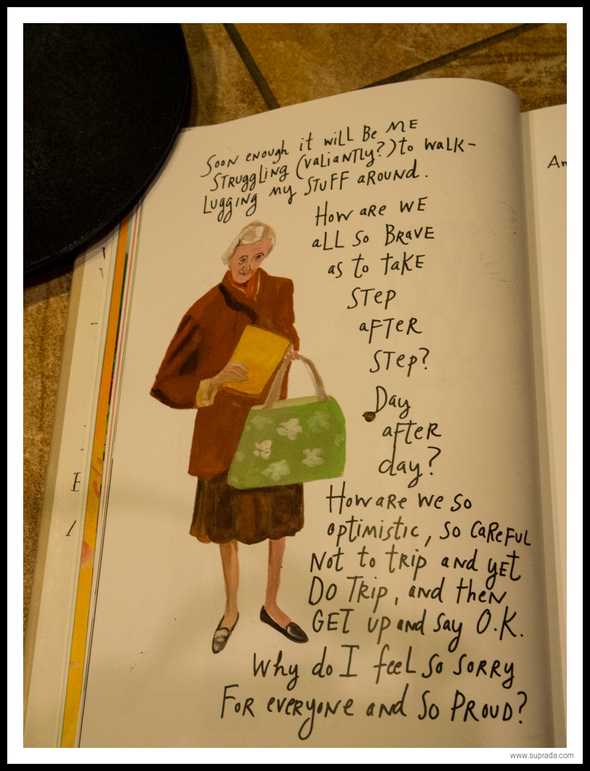 Soon enough it will Be ME
STRuggLiNG (VaLiaNTLy?) to walk—
Lugging my STuff aRound.
How are WE
aLL So BRaVE
as to TaKE
STEP
aFTER
STEP?
Day
aFTER
day?
How are we so
optimistic, so CaReFUL
Not to trip and yET
DO TRip, and then
GET up and say O.K.
Why do I feel so SoRRy
FOR everyone and so PRoud?
An
E
www.suprada.com